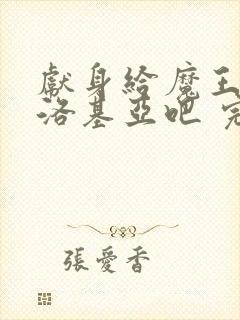 獻身給魔王
洛基亞吧
張愛香